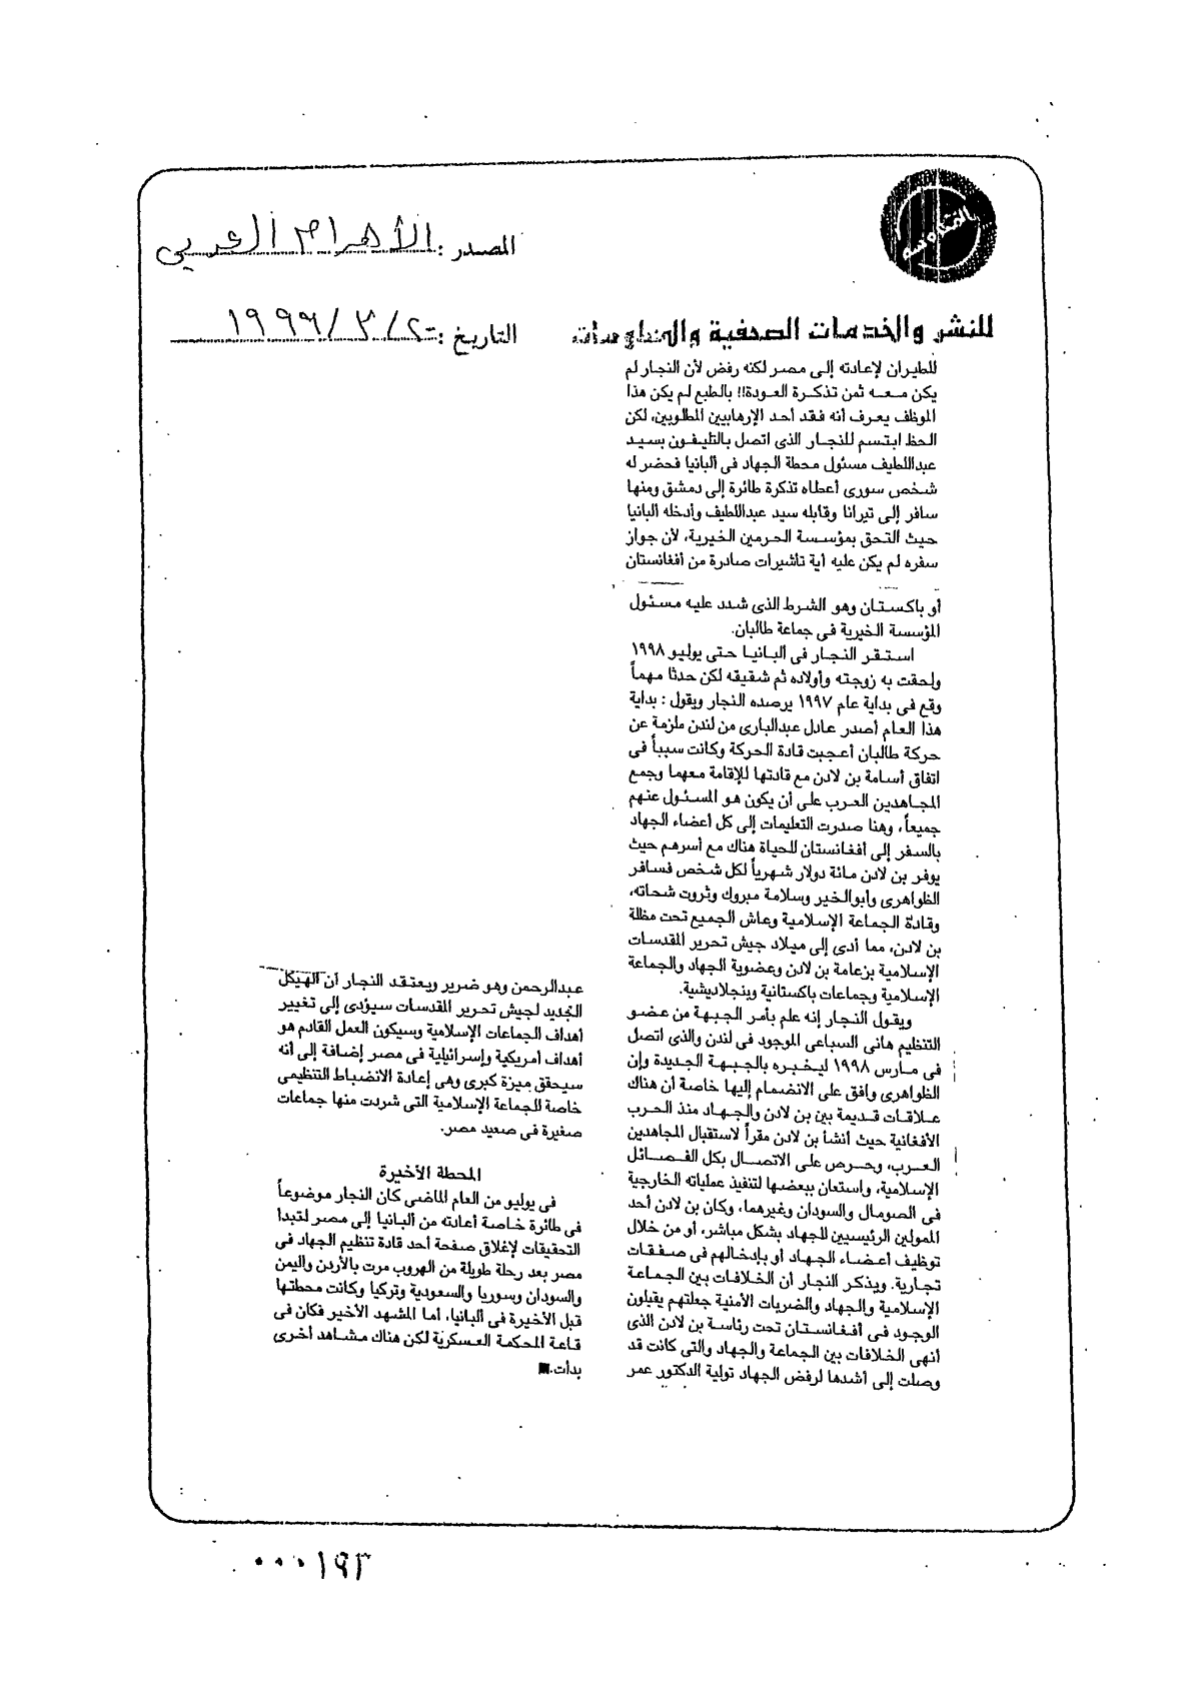 المصدر : الأهرام العربى
للنشر والخدمات الصحفية والمعلومات
التاريخ : ٢٠/٣/١٩٩٩
للطيران لإعادته إلى مصر لكنه رفض لأن النجار لم
يكن معه ثمن تذكرة العودة!! بالطبع لم يكن هذا
الموظف يعرف أنه فقد أحد الإرهابيين المطلوبين، لكن
الحظ ابتسم للنجار الذى اتصل بالتليفون بسيد
عبداللطيف مسئول محطة الجهاد فى ألبانيا فحضر له
شخص سورى أعطاه تذكرة طائرة إلى دمشق ومنها
سافر إلى تيرانا وقابله سيد عبداللطيف وأدخله ألبانيا
حيث التحق بمؤسسة الحرمين الخيرية، لأن جواز
سفره لم يكن عليه أية تأشيرات صادرة من أفغانستان
أو باكستان وهو الشرط الذى شدد عليه مسئول
المؤسسة الخيرية فى جماعة طالبان.
استقر النجار فى ألبانيا حتى يوليو ١٩٩٨
ولحقت به زوجته وأولاده ثم شقيقه لكن حدثا مهماً
وقع فى بداية عام ١٩٩٧ يرصده النجار ويقول : بداية
هذا العام أصدر عادل عبدالبارى من لندن ملزمة عن
حركة طالبان أعجبت قادة الحركة وكانت سبباً فى
اتفاق أسامة بن لادن مع قادتها للإقامة معهما وجمع
المجاهدين العرب على أن يكون هو المسئول عنهم
جميعاً، وهنا صدرت التعليمات إلى كل أعضاء الجهاد
بالسفر إلى أفغانستان للحياة هناك مع أسرهم حيث
يوفر بن لادن مائة دولار شهرياً لكل شخص فسافر
الظواهرى وأبوالخير وسلامة مبروك وثروت شحاته،
وقادة الجماعة الإسلامية وعاش الجميع تحت مظلة
بن لادن، مما أدى إلى ميلاد جيش تحرير المقدسات
الإسلامية بزعامة بن لادن وعضوية الجهاد والجماعة
الإسلامية وجماعات باكستانية وبنجلاديشية.
ويقول النجار إنه علم بأمر الجبهة من عضو
التنظيم هانى السباعى الموجود فى لندن والذى اتصل
فى مارس ١٩٩٨ ليخبره بالجبهة الجديدة وإن
الظواهرى وافق على الانضمام إليها خاصة أن هناك
علاقات قديمة بين بن لادن والجهاد منذ الحرب
الأفغانية حيث أنشأ بن لادن مقراً لاستقبال المجاهدين
العرب، وحرص على الاتصال بكل الفصائل
الإسلامية، واستعان ببعضها لتنفيذ عملياته الخارجية
فى الصومال والسودان وغيرهما، وكان بن لادن أحد
الممولين الرئيسيين للجهاد بشكل مباشر، أو من خلال
توظيف أعضاء الجهاد أو بإدخالهم فى صفقات
تجارية. ويذكر النجار أن الخلافات بين الجماعة
الإسلامية والجهاد والضربات الأمنية جعلتهم يقبلون
الوجود فى أفغانستان تحت رئاسة بن لادن الذى
أنهى الخلافات بين الجماعة والجهاد والتى كانت قد
وصلت إلى أشدها لرفض الجهاد تولية الدكتور عمر
عبدالرحمن وهو ضرير ويعتقد النجار أن الهيكل
الجديد لجيش تحرير المقدسات سيؤدى إلى تغيير
أهداف الجماعات الإسلامية وسيكون العمل القادم هو
أهداف أمريكية وإسرائيلية فى مصر إضافة إلى أنه
سيحقق ميزة كبرى وهى إعادة الانضباط التنظيمى
خاصة للجماعة الإسلامية التى شردت منها جماعات
صغيرة فى صعيد مصر.
المحطة الأخيرة
فى يوليو من العام الماضى كان النجار موضوعاً
فى طائرة خاصة أعادته من ألبانيا إلى مصر لتبدأ
التحقيقات لإغلاق صفحة أحد قادة تنظيم الجهاد فى
مصر بعد رحلة طويلة من الهروب مرت بالأردن واليمن
والسودان وسوريا والسعودية وتركيا وكانت محطتها
قبل الأخيرة فى ألبانيا، أما المشهد الأخير فكان فى
قاعة المحكمة العسكرية لكن هناك مشاهد أخرى
بدأت.■
٠٠٠١٩٣